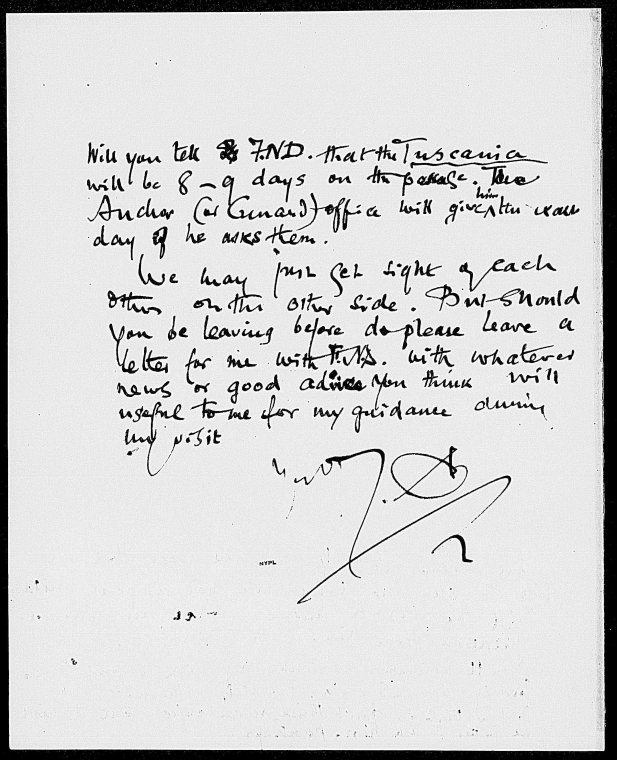 Will you tell F.N.D. that the Tuscania
will be 8–9 days on the passage. The
Anchor (or Cunard) office will give him the exact
day if he asks them.
We may just get sight of each
other on the other side. But should
you be leaving before do please leave a
letter for me with F.N.D. with whatever
news or good advice you think will
useful to me for my guidance during
my visit
J.C.
2
NYPL